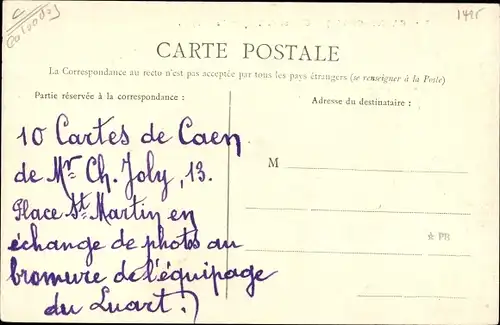 C
Calvados
1495
CARTE POSTALE
La Correspondance au recto n'est pas acceptée par tous les pays étrangers (se renseigner à la Poste)
Partie réservée à la correspondance :
Adresse du destinataire :
10 Cartes de Caen
de Mr Ch. Joly, 13.
Place St Martin en
échange de photos au
bromure de l'équipage
du Luart.)
M
☆ PB